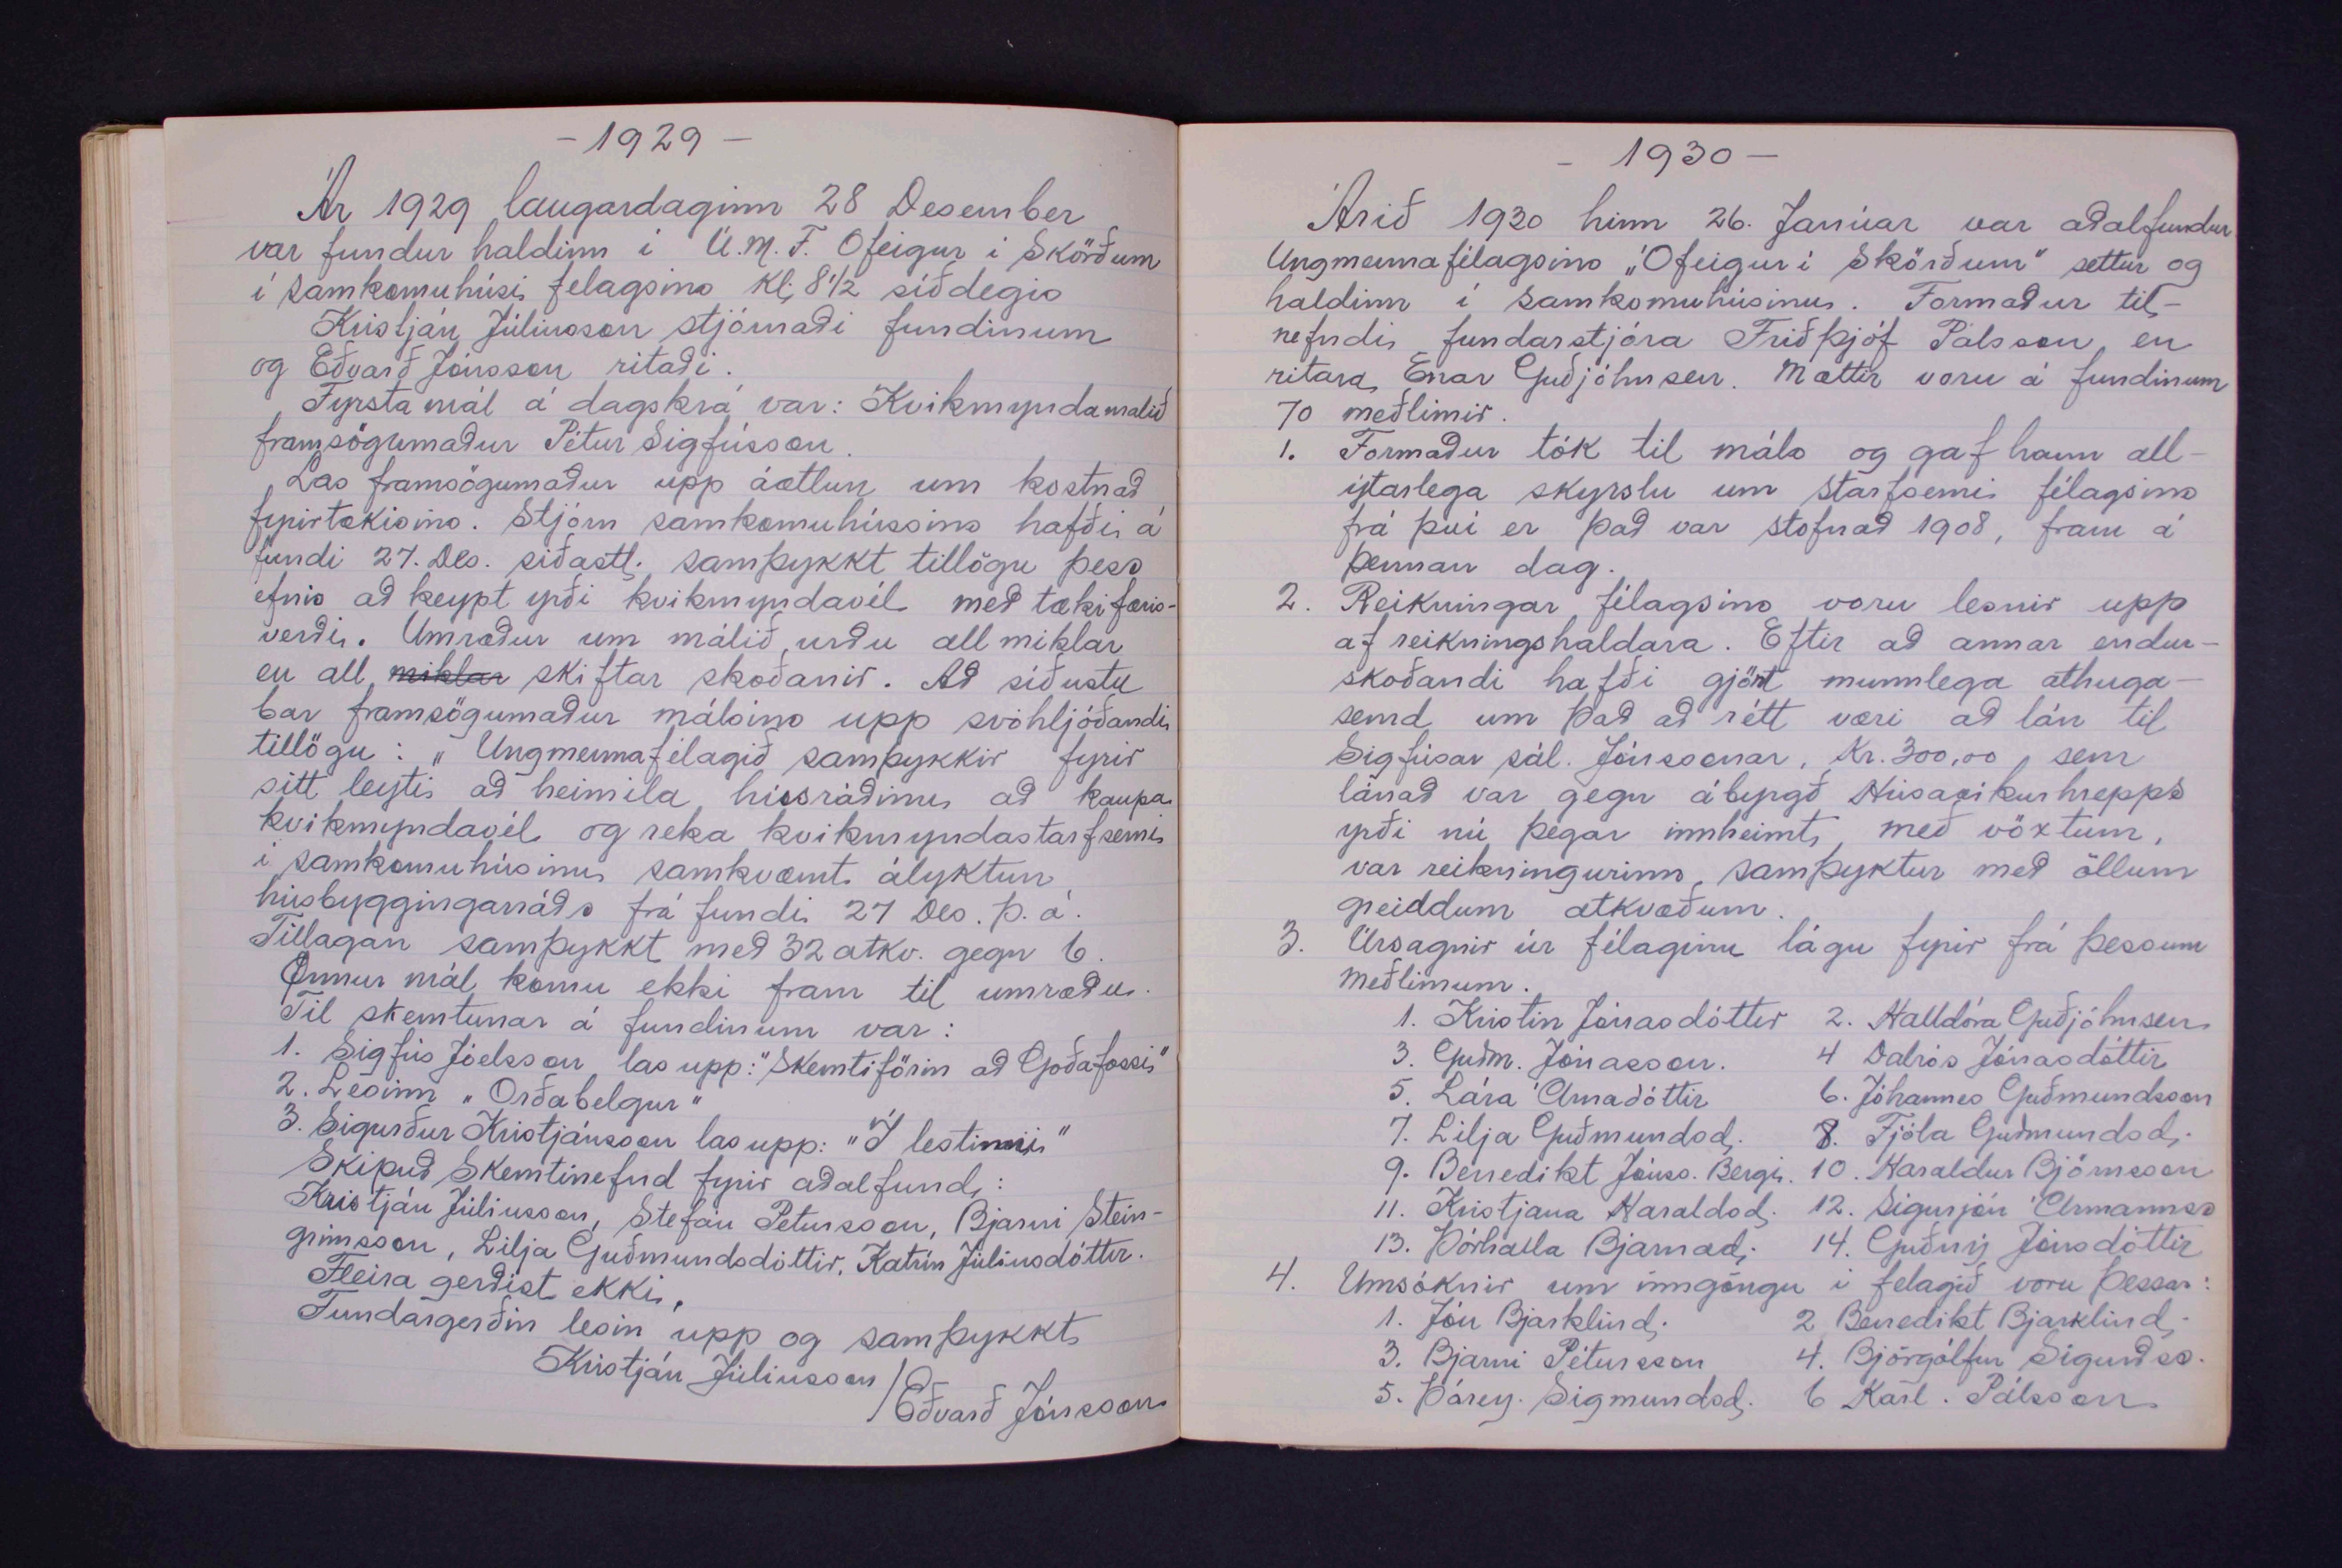 - 1929 -
Ár 1929 laugardaginn 28 Desember
var fundur haldinn í U.M.F. Ofeigur í Skörðum
í samkomuhúsi felagsins Kl; 8 1/2 síðdegis
Kristján Júliusson stjórnaði fundinum
og Eðvarð Jónsson ritaði.
Fyrsta mál á dagskrá var: Kvikmyndamalið
framsögumaður Pétur Sigfússon.
Las framsögumaður upp áætlun um kostnað
fyrirtækisins. Stjórn samkomuhússins hafði á
fundi 27. Des. síðastl. samþykkt tillögu þess
efnis að keypt yrði kvikmyndavél með tækifæris-
verði. Umræður um málið urðu all miklar
en all miklar skiftar skoðanir. Að síðustu
bar framsögumaður málsins upp svohljóðandi
tillögu: „Ungmennafélagið samþykkir fyrir
sitt leyti að heimila húsráðinu að kaupa
kvikmyndavél og reka kvikmyndastarfsemi
í samkomuhúsinu samkvæmt ályktun
húsbyggingarráðs frá fundi 27 Des. þ. á.
Tillagan samþykkt með 32 atkv. gegn 6.
Önnur mál komu ekki fram til umræðu.
Til skemtunar á fundinum var:
1. Sigfús Jóelsson las upp: "Skemtiförin að Goðafossi"
2. Lesinn „Orðabelgur"
3. Sigurður Kristjánsson las upp: "Í lestinni"
Skipuð Skemtinefnd fyrir aðalfund:
Kristján Júliusson, Stefán Petursson, Bjarni Stein-
grimsson, Lilja Guðmundsdóttir, Katrín Júliusdóttir.
Fleira gerðist ekki.
Fundargerðin lesin upp og samþykkt
Kristján Júliusson / Eðvarð Jónsson
- 1930 -
Árið 1930 hinn 26. Janúar var aðalfundur
Ungmennafélagsins „Ófeigur í Skörðum" settur og
haldinn í samkomuhúsinu. Formaður til-
nefndi fundarstjóra Friðþjóf Pálsson en
ritara Einar Guðjóhnsen. Mættir voru á fundinum
70 meðlimir.
1. Formaður tók til máls og gaf hann all-
ýtarlega skyrslu um starfsemi félagsins
frá því er það var stofnað 1908, fram á
þennan dag.
2. Reikningar félagsins voru lesnir upp
af reikningshaldara. Eftir að annar endur-
skoðandi hafði gjört munnlega athuga-
semd um það að rétt væri að lán til
Sigfúsar sál. Jónssonar, Kr. 300,00, sem
lánað var gegn ábyrgð Húsavíkurhrepps
yrði nú þegar innheimt með vöxtum,
var reikningurinn samþyktur með öllum
greiddum atkvæðum.
3. Úrsagnir úr félaginu lágu fyrir frá þessum
meðlimum.
1. Kristin Jónasdóttir 2. Halldóra Guðjóhnsen
3. Guðm. Jónasson. 4 Dalrós Jónasdóttir
5. Lára Árnadóttir 6. Jóhannes Guðmundsson
7. Lilja Guðmundsd. 8. Fjóla Guðmundsd.
9. Benedikt Jónss. Bergi. 10. Haraldur Björnsson
11. Kristjana Haraldsd. 12. Sigurjón Ármannss
13. Þórhalla Bjarnad. 14. Guðný Jónsdóttir
4. Umsóknir um inngöngu í felagið voru þessar:
1. Jón Bjarklind. 2 Benedikt Bjarklind.
3. Bjarni Pétursson 4. Björgólfur Sigurðss.
5. Þórey. Sigmundsd. 6 Karl. Pálsson